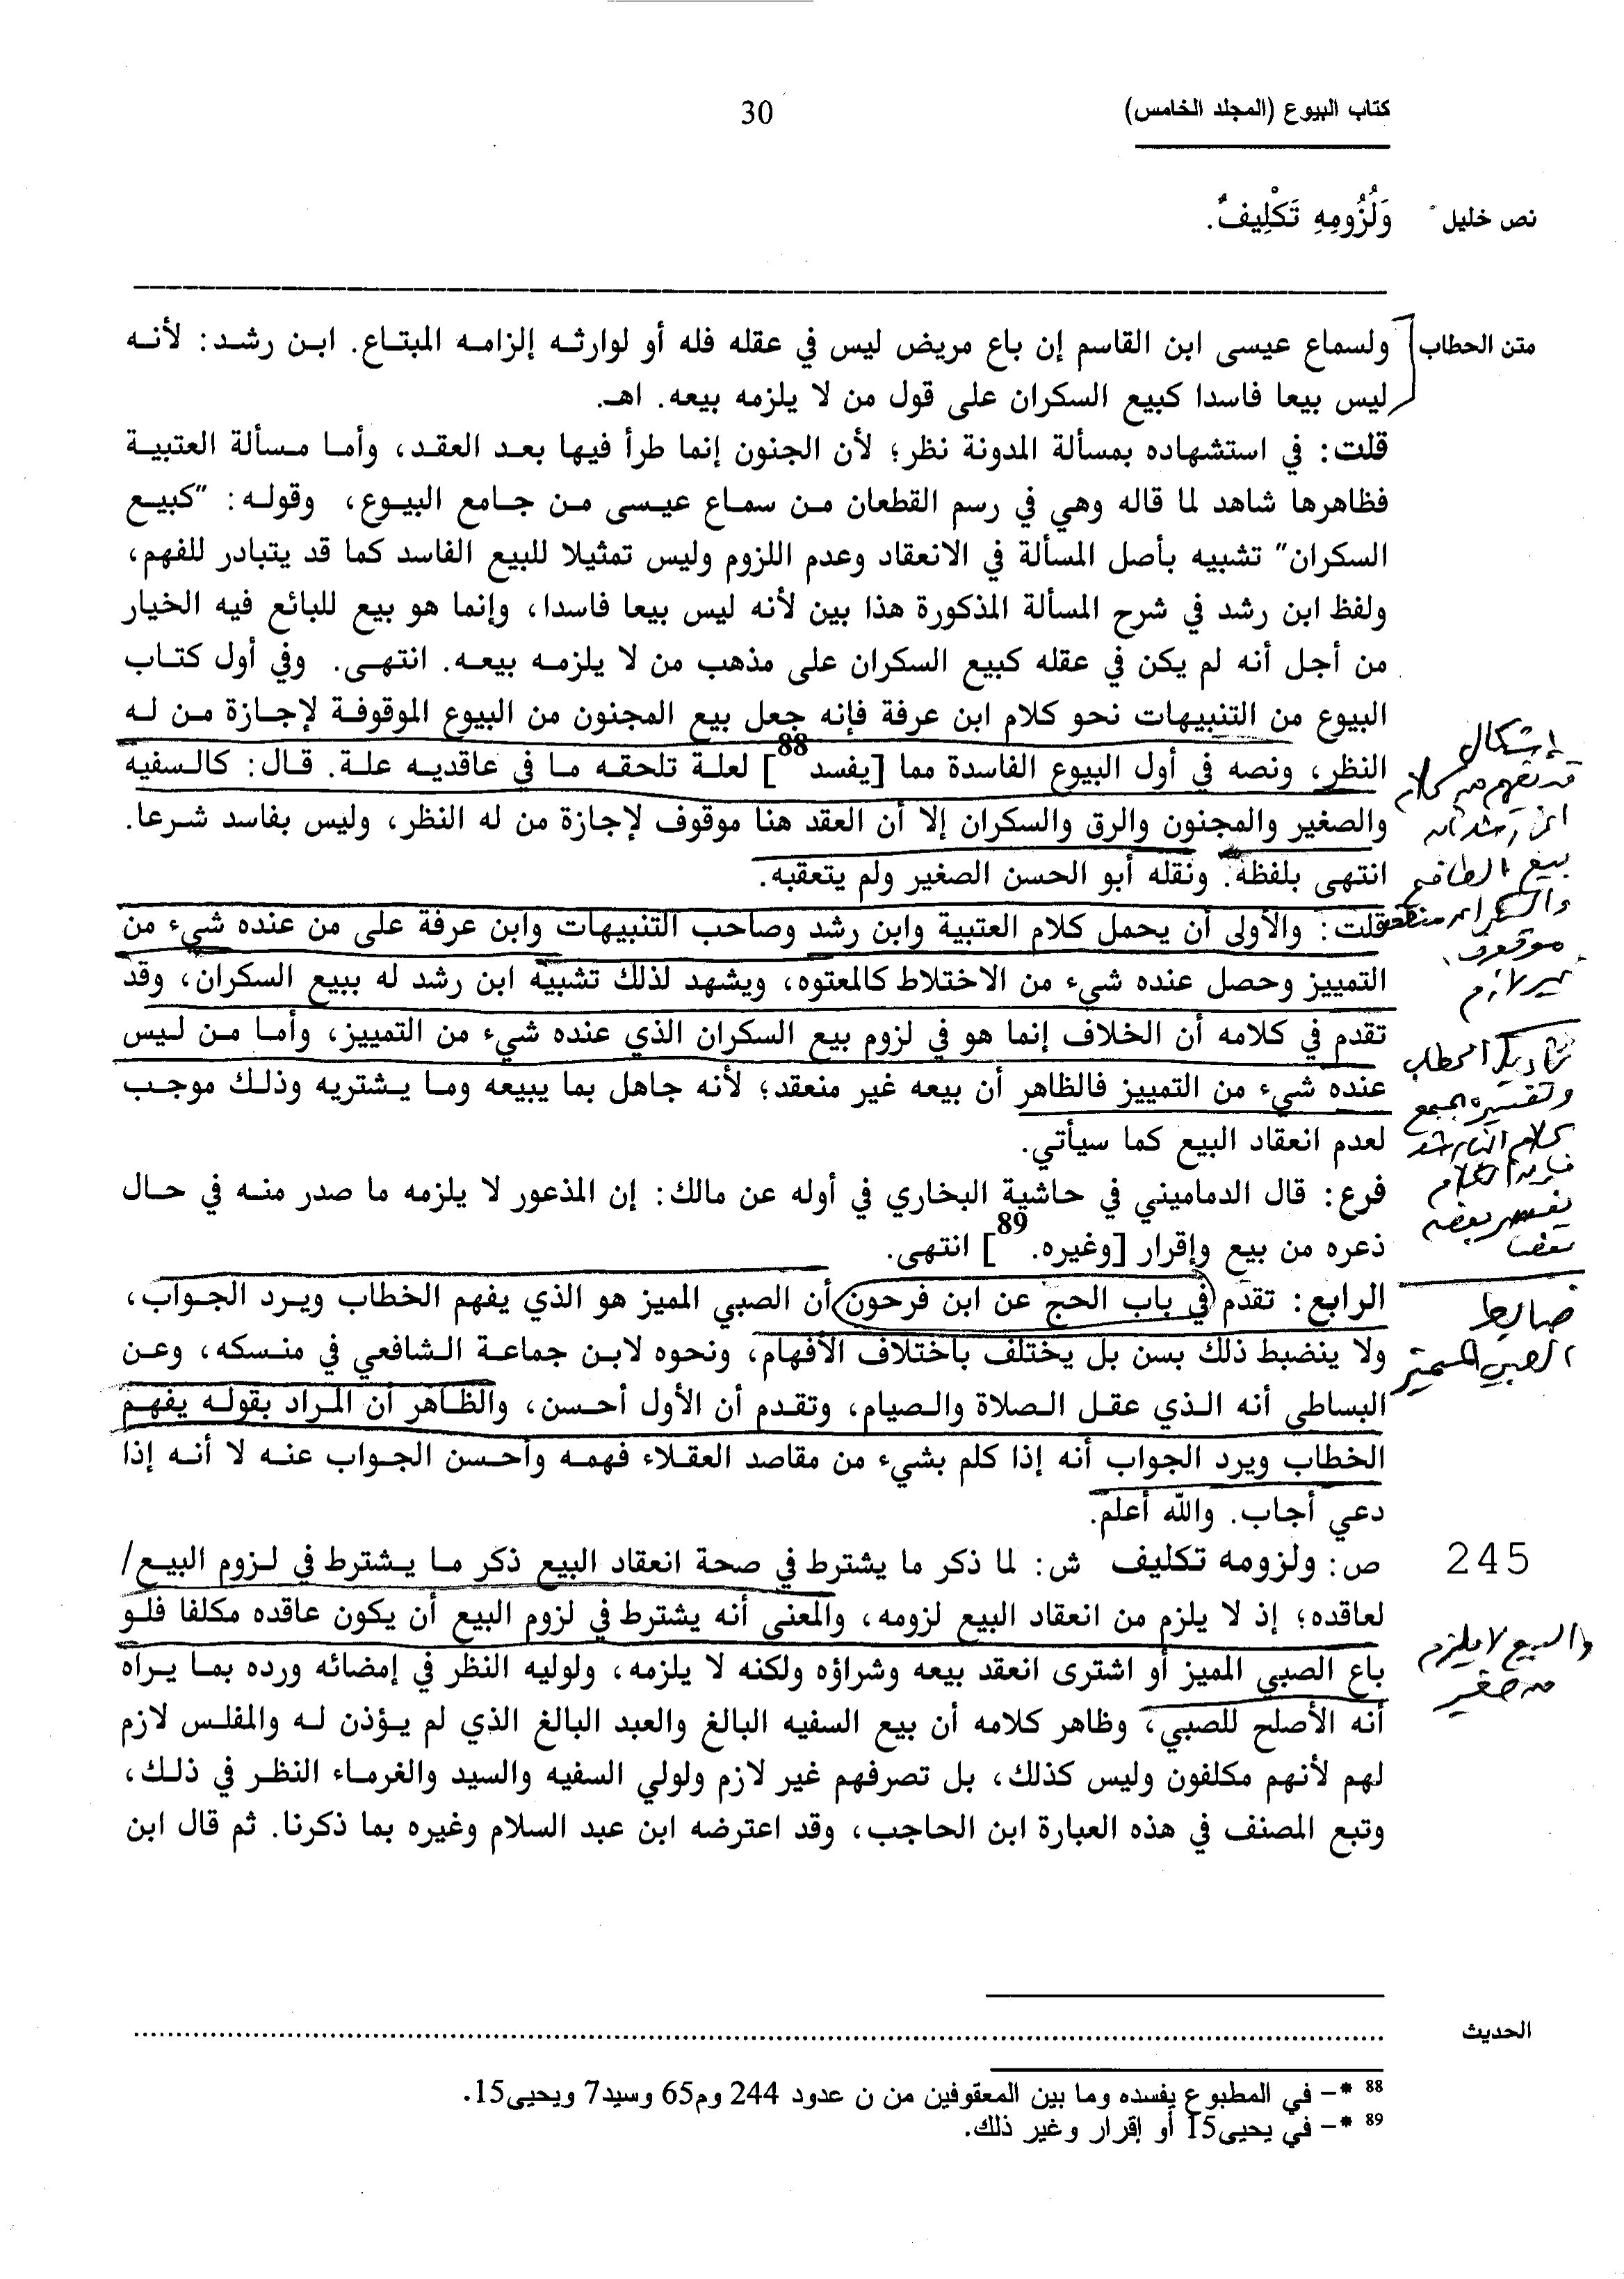 كتاب البيوع (المجلد الخامس)
30
نص خليل
وَلُزُومِهِ تَكْلِيفٌ.
متن الحطاب
ولسماع عيسى ابن القاسم إن باع مريض ليس في عقله فله أو لوارثه إلزامه المبتاع. ابن رشد: لأنه
ليس بيعا فاسدا كبيع السكران على قول من لا يلزمه بيعه. اهـ.
قلت: في استشهاده بمسألة المدونة نظر؛ لأن الجنون إنما طرأ فيها بعد العقد، وأما مسألة العتبية
فظاهرها شاهد لما قاله وهي في رسم القطعان من سماع عيسى من جامع البيوع، وقوله: "كبيع
السكران" تشبيه بأصل المسألة في الانعقاد وعدم اللزوم وليس تمثيلا للبيع الفاسد كما قد يتبادر للفهم،
ولفظ ابن رشد في شرح المسألة المذكورة هذا بين لأنه ليس بيعا فاسدا، وإنما هو بيع للبائع فيه الخيار
من أجل أنه لم يكن في عقله كبيع السكران على مذهب من لا يلزمه بيعه. انتهى. وفي أول كتاب
البيوع من التنبيهات نحو كلام ابن عرفة فإنه جعل بيع المجنون من البيوع الموقوفة لإجازة من له
النظر، ونصه في أول البيوع الفاسدة مما [يفسد88] لعلة تلحقه ما في عاقديه علة. قال: كالسفيه
والصغير والمجنون والرق والسكران إلا أن العقد هنا موقوف لإجازة من له النظر، وليس بفاسد شرعا.
انتهى بلفظه. ونقله أبو الحسن الصغير ولم يتعقبه.
قلت: والأولى أن يحمل كلام العتبية وابن رشد وصاحب التنبيهات وابن عرفة على من عنده شيء من
التمييز وحصل عنده شيء من الاختلاط كالمعتوه، ويشهد لذلك تشبيه ابن رشد له ببيع السكران، وقد
تقدم في كلامه أن الخلاف إنما هو في لزوم بيع السكران الذي عنده شيء من التمييز، وأما من ليس
عنده شيء من التمييز فالظاهر أن بيعه غير منعقد؛ لأنه جاهل بما يبيعه وما يشتريه وذلك موجب
لعدم انعقاد البيع كما سيأتي.
فرع: قال الدماميني في حاشية البخاري في أوله عن مالك: إن المذعور لا يلزمه ما صدر منه في حال
ذعره من بيع وإقرار [وغيره.89] انتهى.
الرابع: تقدم في باب الحج عن ابن فرحون أن الصبي المميز هو الذي يفهم الخطاب ويرد الجواب،
ولا ينضبط ذلك بسن بل يختلف باختلاف الأفهام، ونحوه لابن جماعة الشافعي في منسكه، وعن
البساطي أنه الذي عقل الصلاة والصيام، وتقدم أن الأول أحسن، والظاهر أن المراد بقوله يفهم
الخطاب ويرد الجواب أنه إذا كلم بشيء من مقاصد العقلاء فهمه وأحسن الجواب عنه لا أنه إذا
دعي أجاب. والله أعلم.
ص: ولزومه تكليف ش: لما ذكر ما يشترط في صحة انعقاد البيع ذكر ما يشترط في لزوم البيع/
245
لعاقده؛ إذ لا يلزم من انعقاد البيع لزومه، والمعنى أنه يشترط في لزوم البيع أن يكون عاقده مكلفا فلو
باع الصبي المميز أو اشترى انعقد بيعه وشراؤه ولكنه لا يلزمه، ولوليه النظر في إمضائه ورده بما يراه
أنه الأصلح للصبي، وظاهر كلامه أن بيع السفيه البالغ والعبد البالغ الذي لم يؤذن له والمفلس لازم
لهم لأنهم مكلفون وليس كذلك، بل تصرفهم غير لازم ولولي السفيه والسيد والغرماء النظر في ذلك،
وتبع المصنف في هذه العبارة ابن الحاجب، وقد اعترضه ابن عبد السلام وغيره بما ذكرنا. ثم قال ابن
إشكال
قد يفهم من كلام
ابن رشد أن
بيع
والسكران منعقد
موقوف
غير لازم
الحطاب
وتفسيره بجمع
كلام ابن رشد
الكلام
يفسر بعضه
بعضا
ضابط
الصبي المميز
والبيع لا يلزم
من صغير
الحديث
88 *- في المطبوع يفسده وما بين المعقوفين من ن عدود 244 وم65 وسيد7 ويحيى15.
89 *- في يحيى15 أو إقرار وغير ذلك.